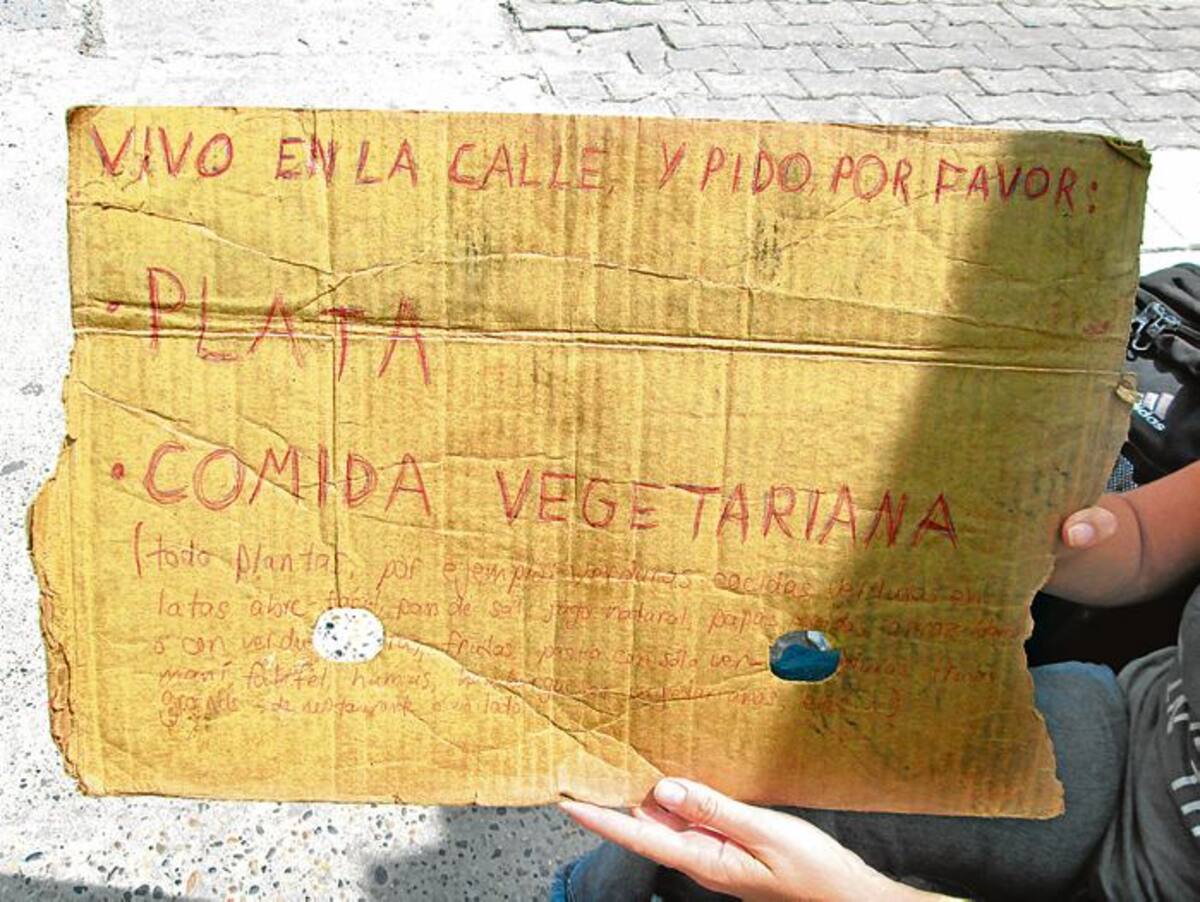 VIVO EN LA CALLE, Y PIDO POR FAVOR:
· PLATA
· COMIDA VEGETARIANA
(todo plantas, por ejemplo verduras cocidas verduras en
latas abre facil, pan de sal, jugo natural, papas
o con verduras fridas pasta con solo ver-
maní falafel, humus,
grande de restaurante o un lado